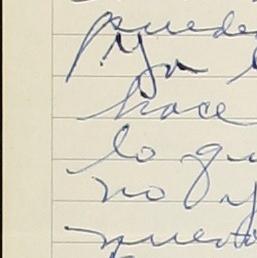 puede
Ya
hace
lo qu
no y
puesto